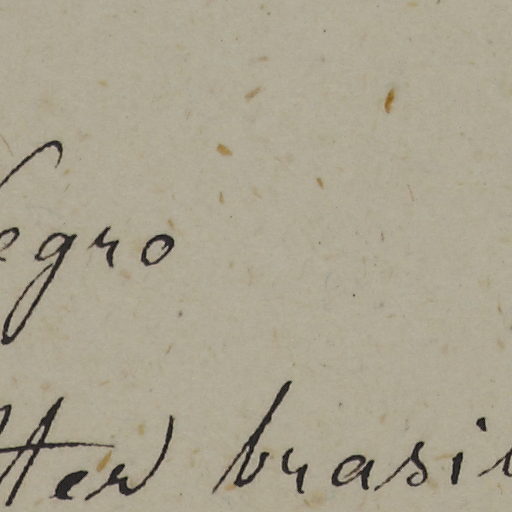 egro
tter brasi